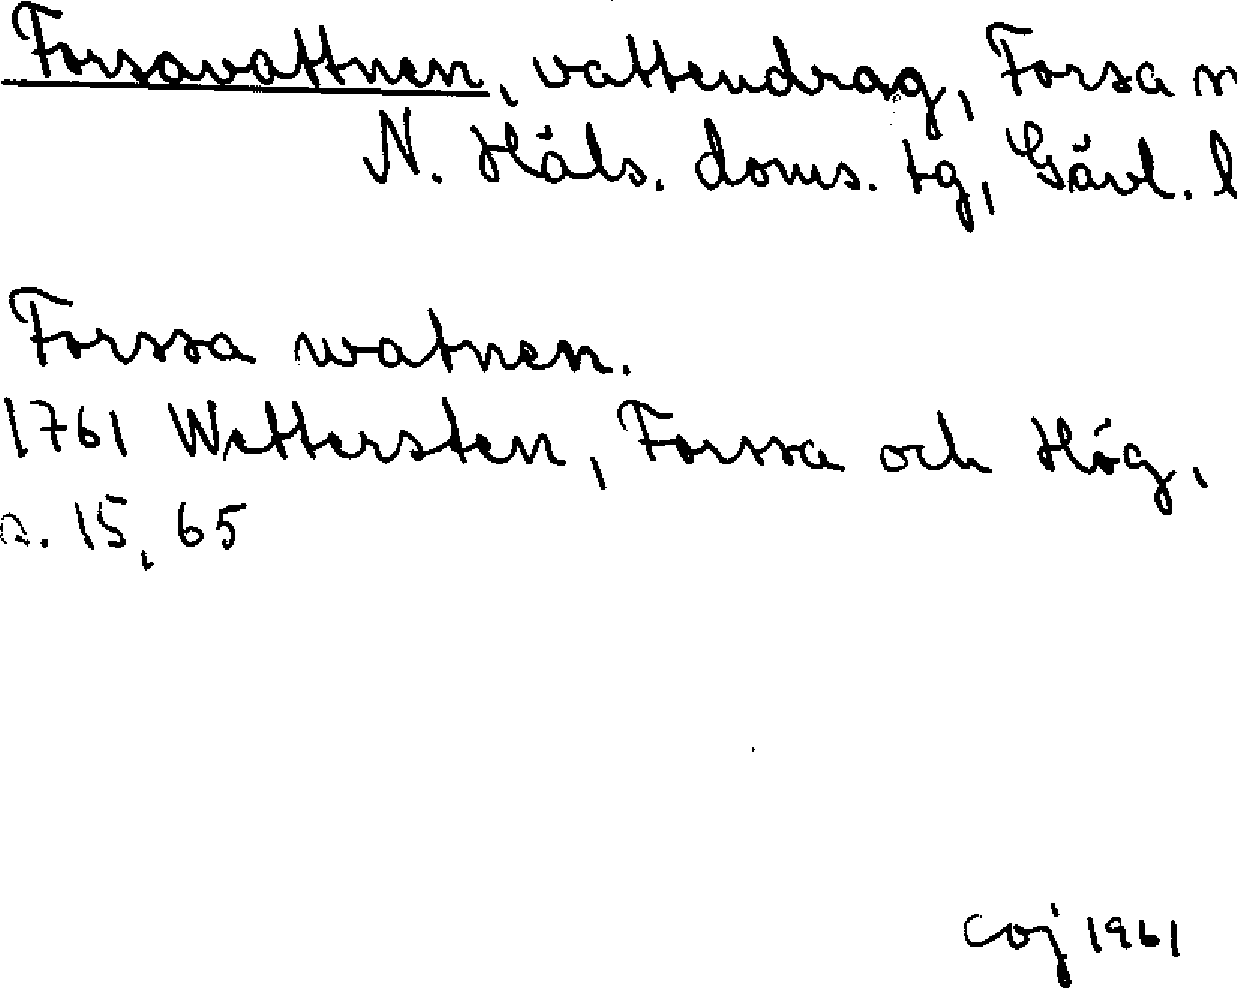 Forsavattnen, vattendrag, Forsa
N. Häls. doms. tg, Gävl. l
Forssa watnen.
1761 Wettersten, Forssa och Hög,
s. 15, 65
COJ 1961